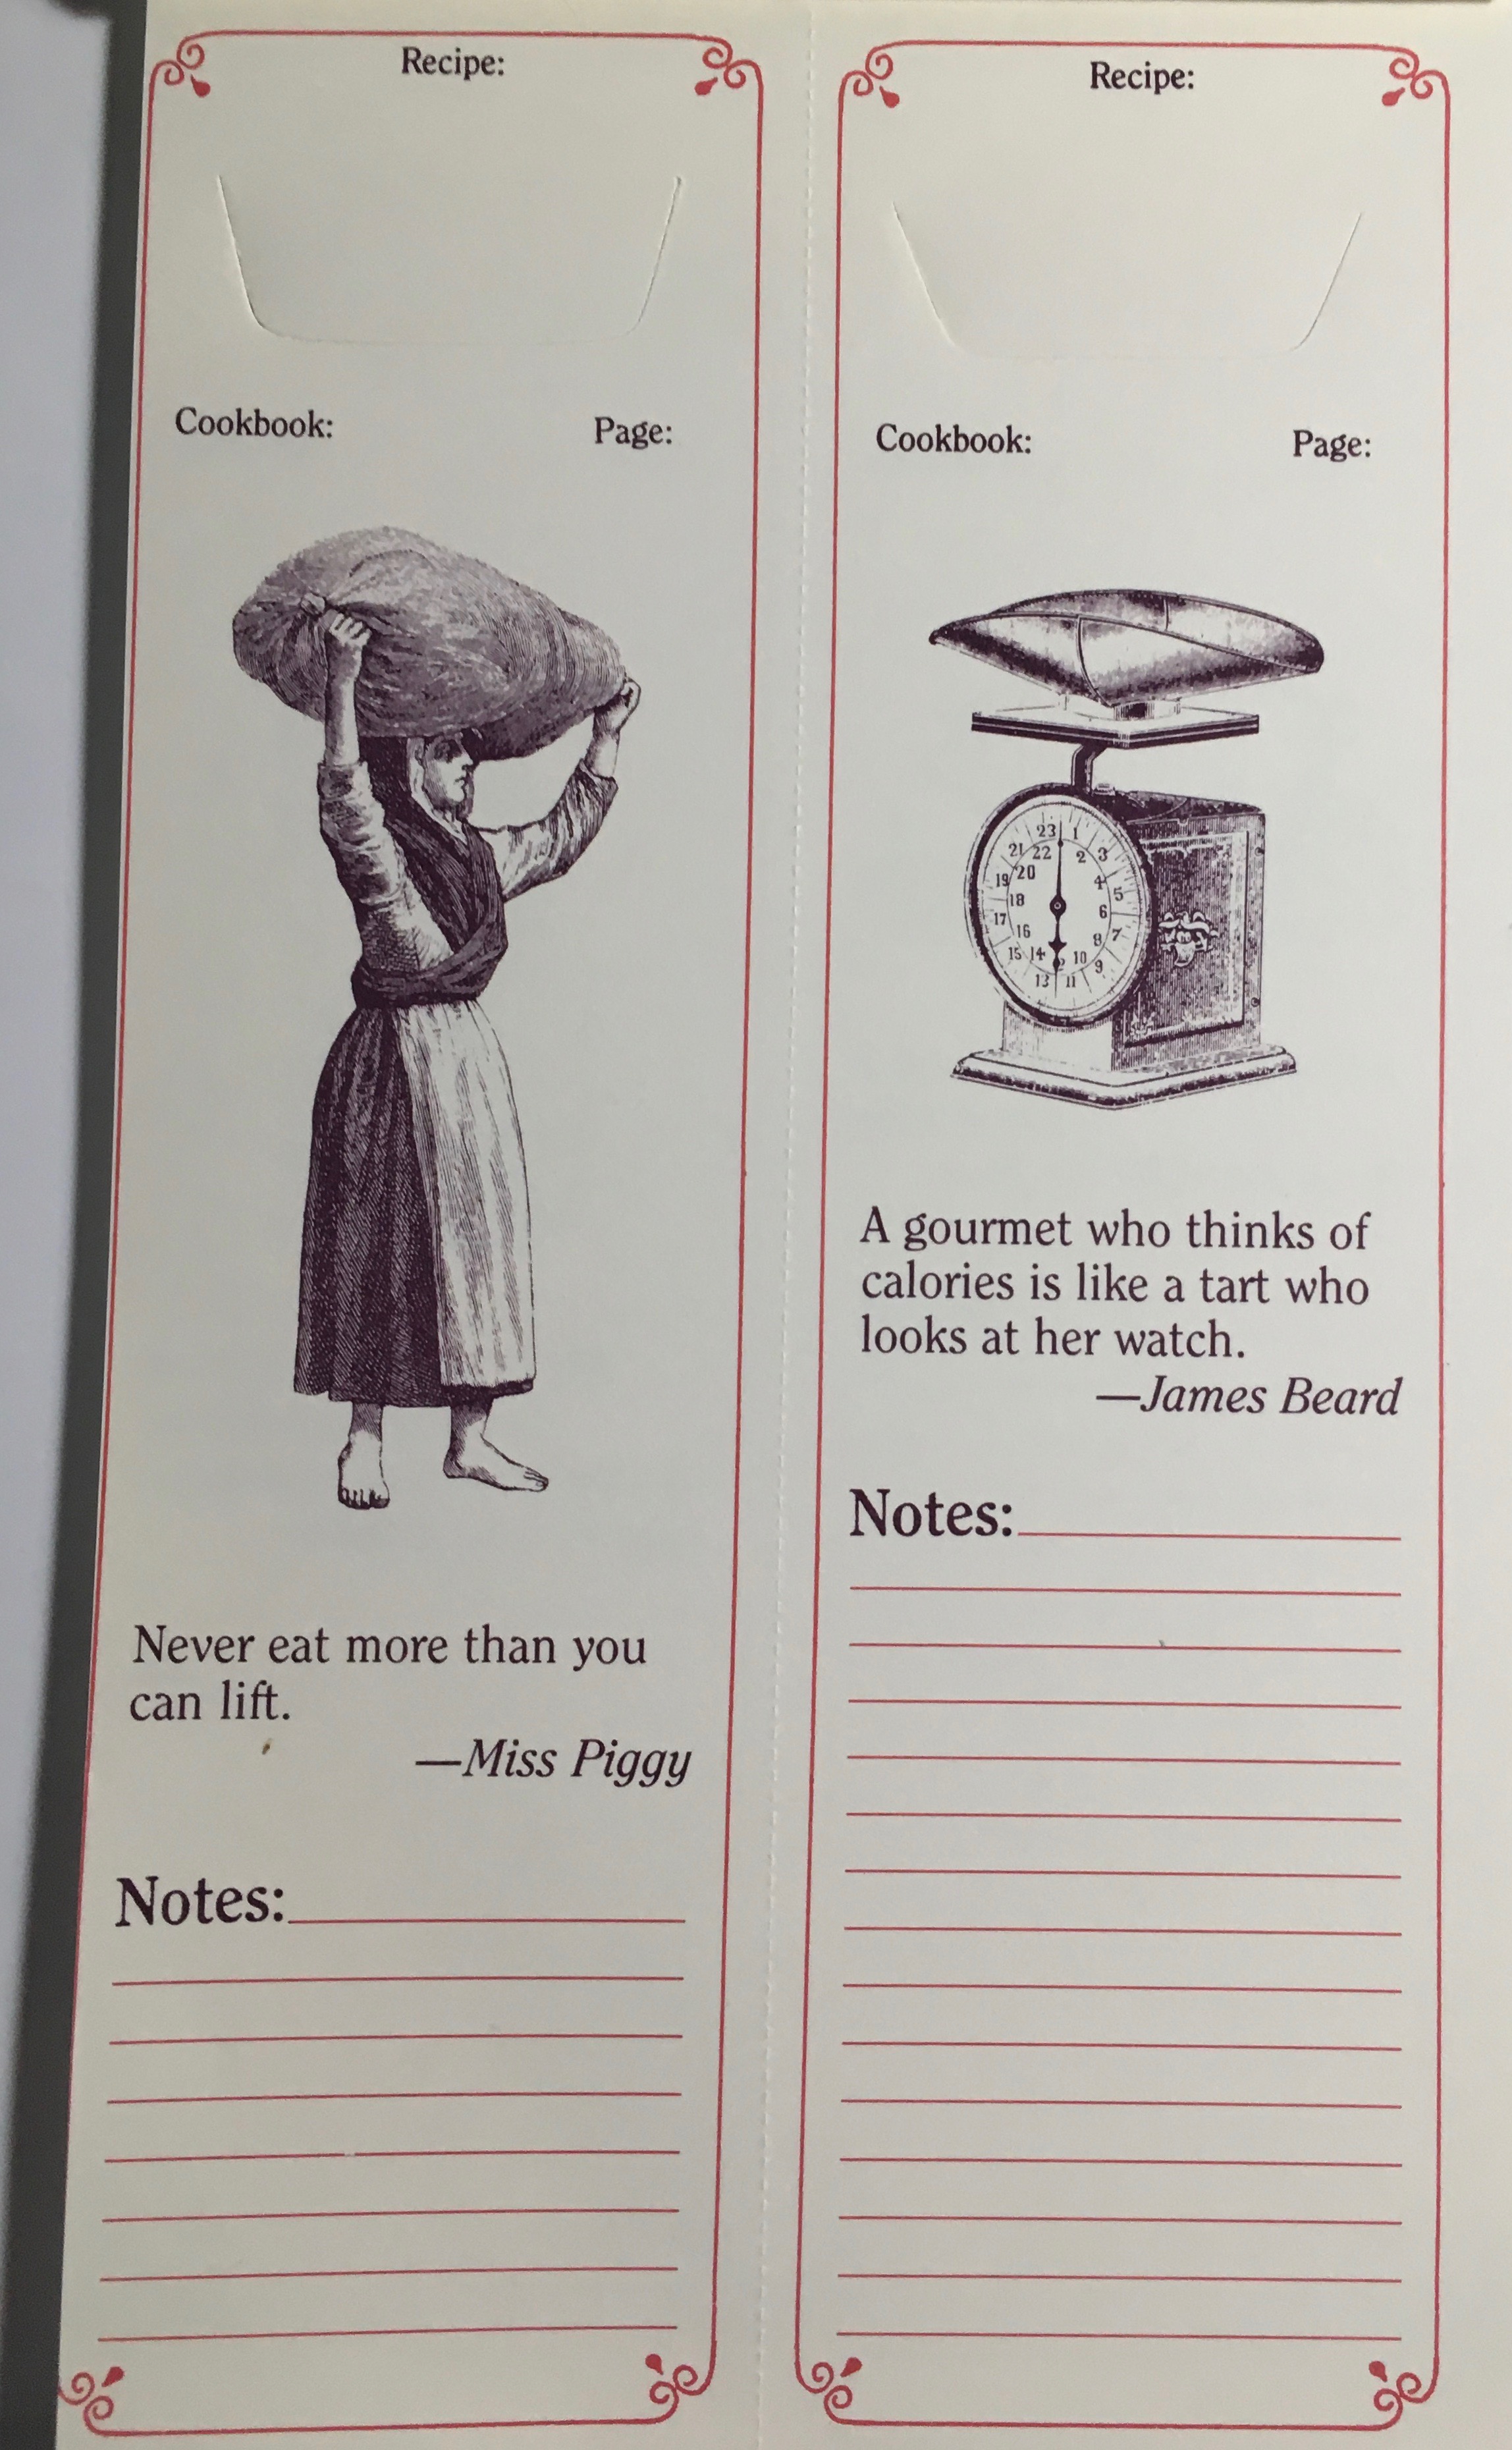 Recipe:
Cookbook: Page:
Never eat more than you
can lift.
—Miss Piggy
Notes:
Recipe:
Cookbook: Page:
23 1
21 22 2 3
20
19 4
18 5
17 6
16 8 7
15 14 10 9
13 11
A gourmet who thinks of
calories is like a tart who
looks at her watch.
—James Beard
Notes: